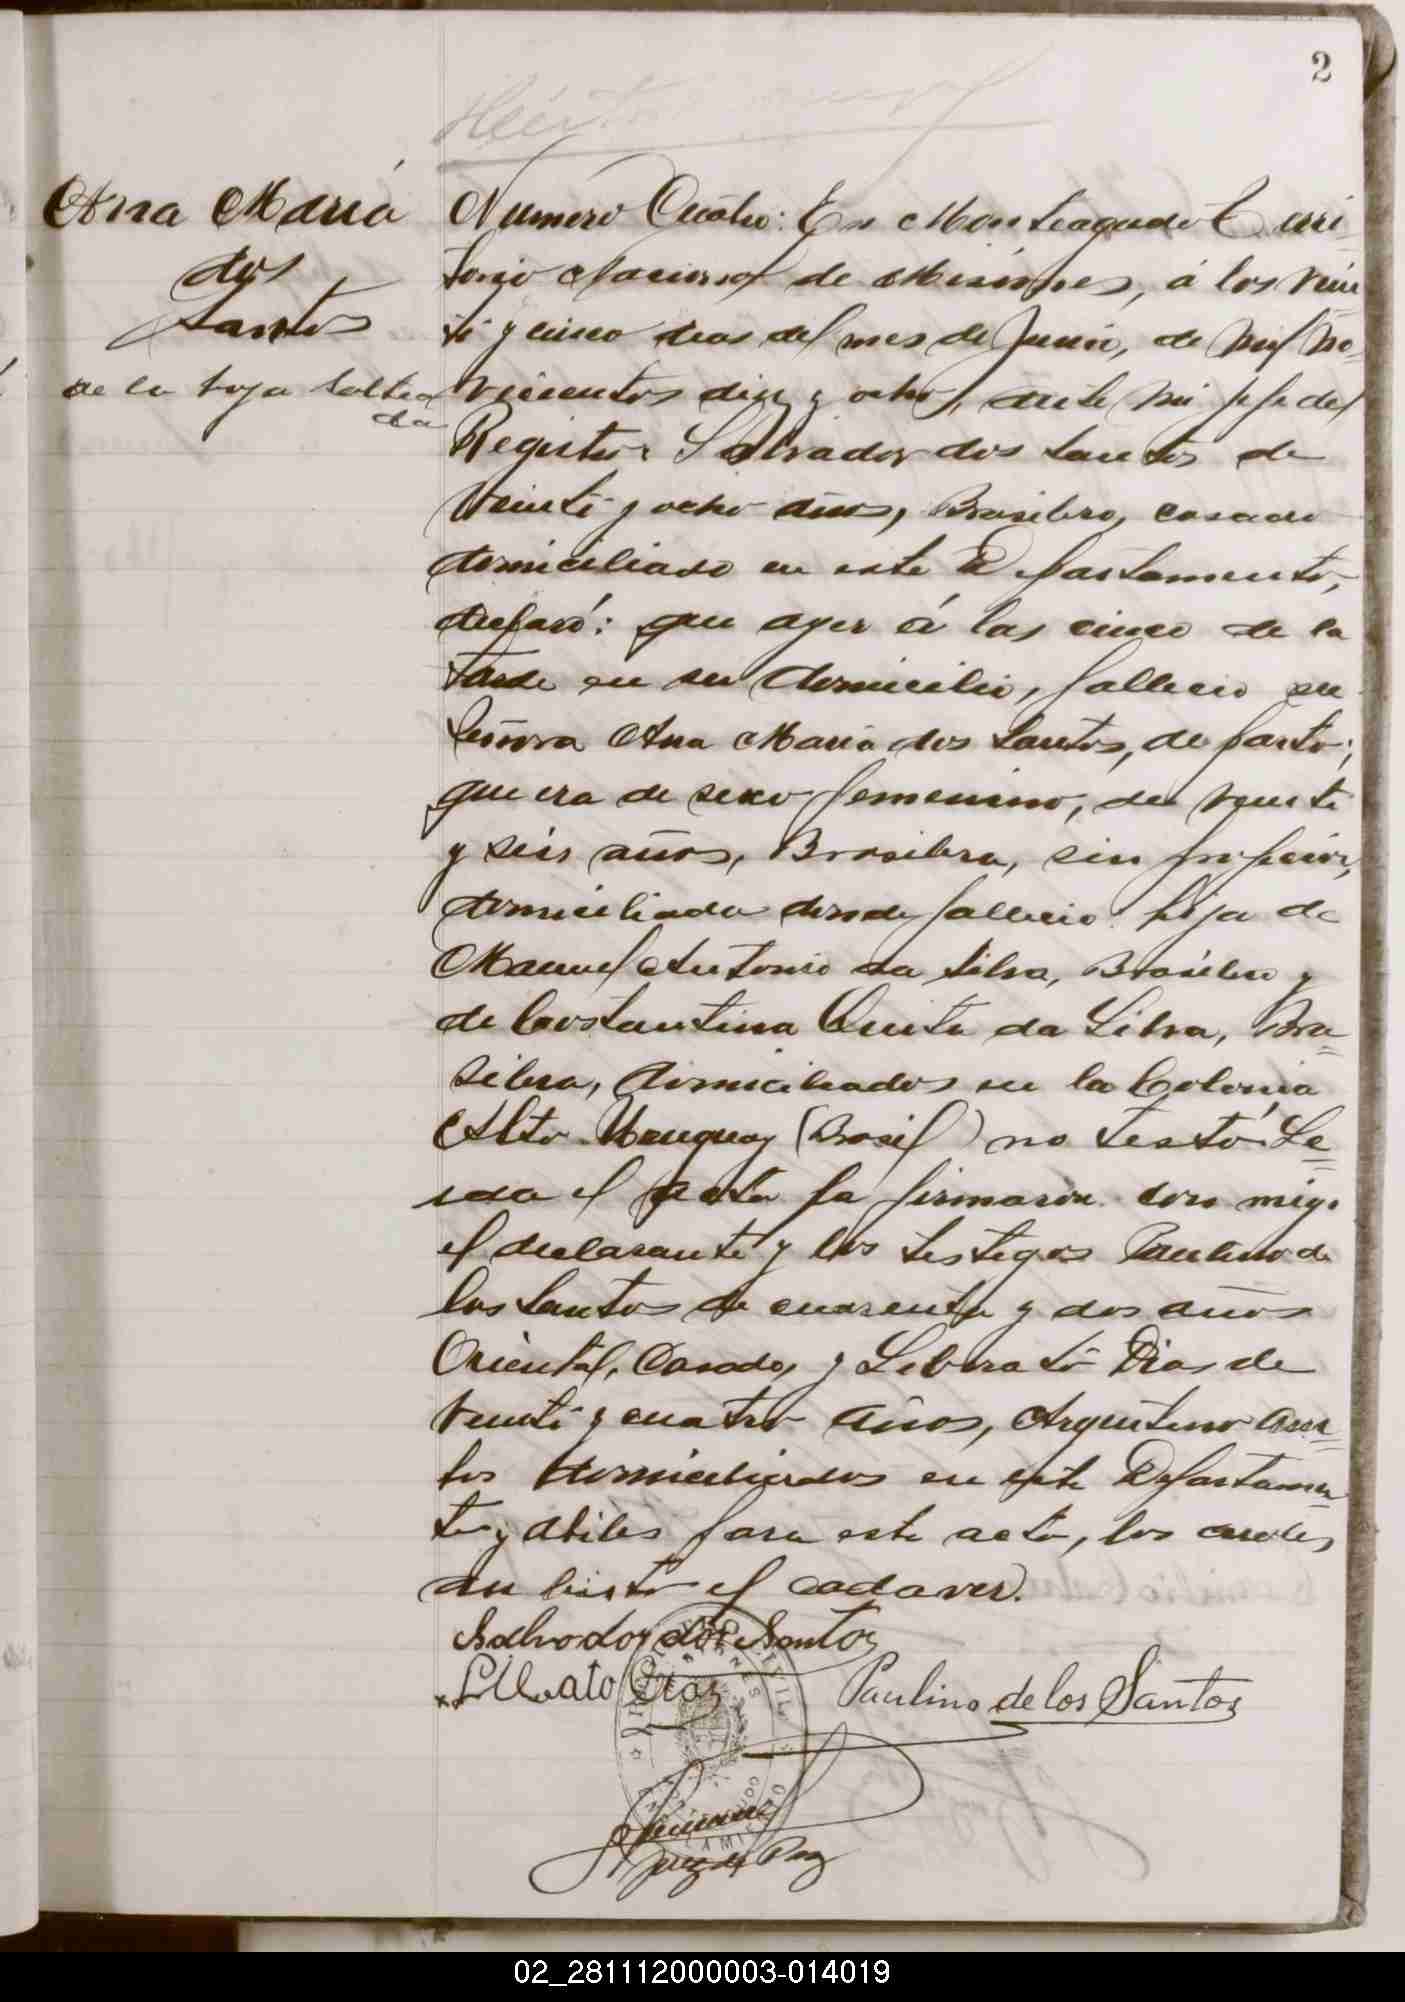 2
Ana María
dos
Santos
de la hoja saltea
da
Numero Cuatro: En Monteagudo Terri-
torio Nacional de Misiones, á los vein
ti y cinco dias del mes de Junio, de mil no-
vecientos diez y ocho, ante mi Jefe del
Registro: Salvador dos Santos de
veinti y ocho años, Brasilero, casado
domiciliado en este Departamento,
declaró: que ayer á las cinco de la
tarde en su domicilio, fallecio su
señora Ana Maria dos Santos, de parto;
que era de sexo femenino, de veinti
y seis años, Brasilera, sin profecion,
domiciliada donde fallecio: hija de
Manuel Antonio da Silva, Brasilero y
de Costantina da Silva, Bra-
silera, domiciliados en la Colonia
Alto Uruguay (Brasil) no testó. Le-
ida el acta la firmaron con migo
el declarante y los testigos Paulino de
los Santos de cuarenta y dos años
Oriental, Casado, y Liberato Dias de
veinti y cuatro años, Argentino am-
bos domiciliados en este Departamen-
to y abiles para este acto, los cuales
an bisto el cadaver.
Salvador dos Santos
Paulino de los Santos
Juez de Paz
REGISTRO CIVIL
MISIONES
02_281112000003-014019